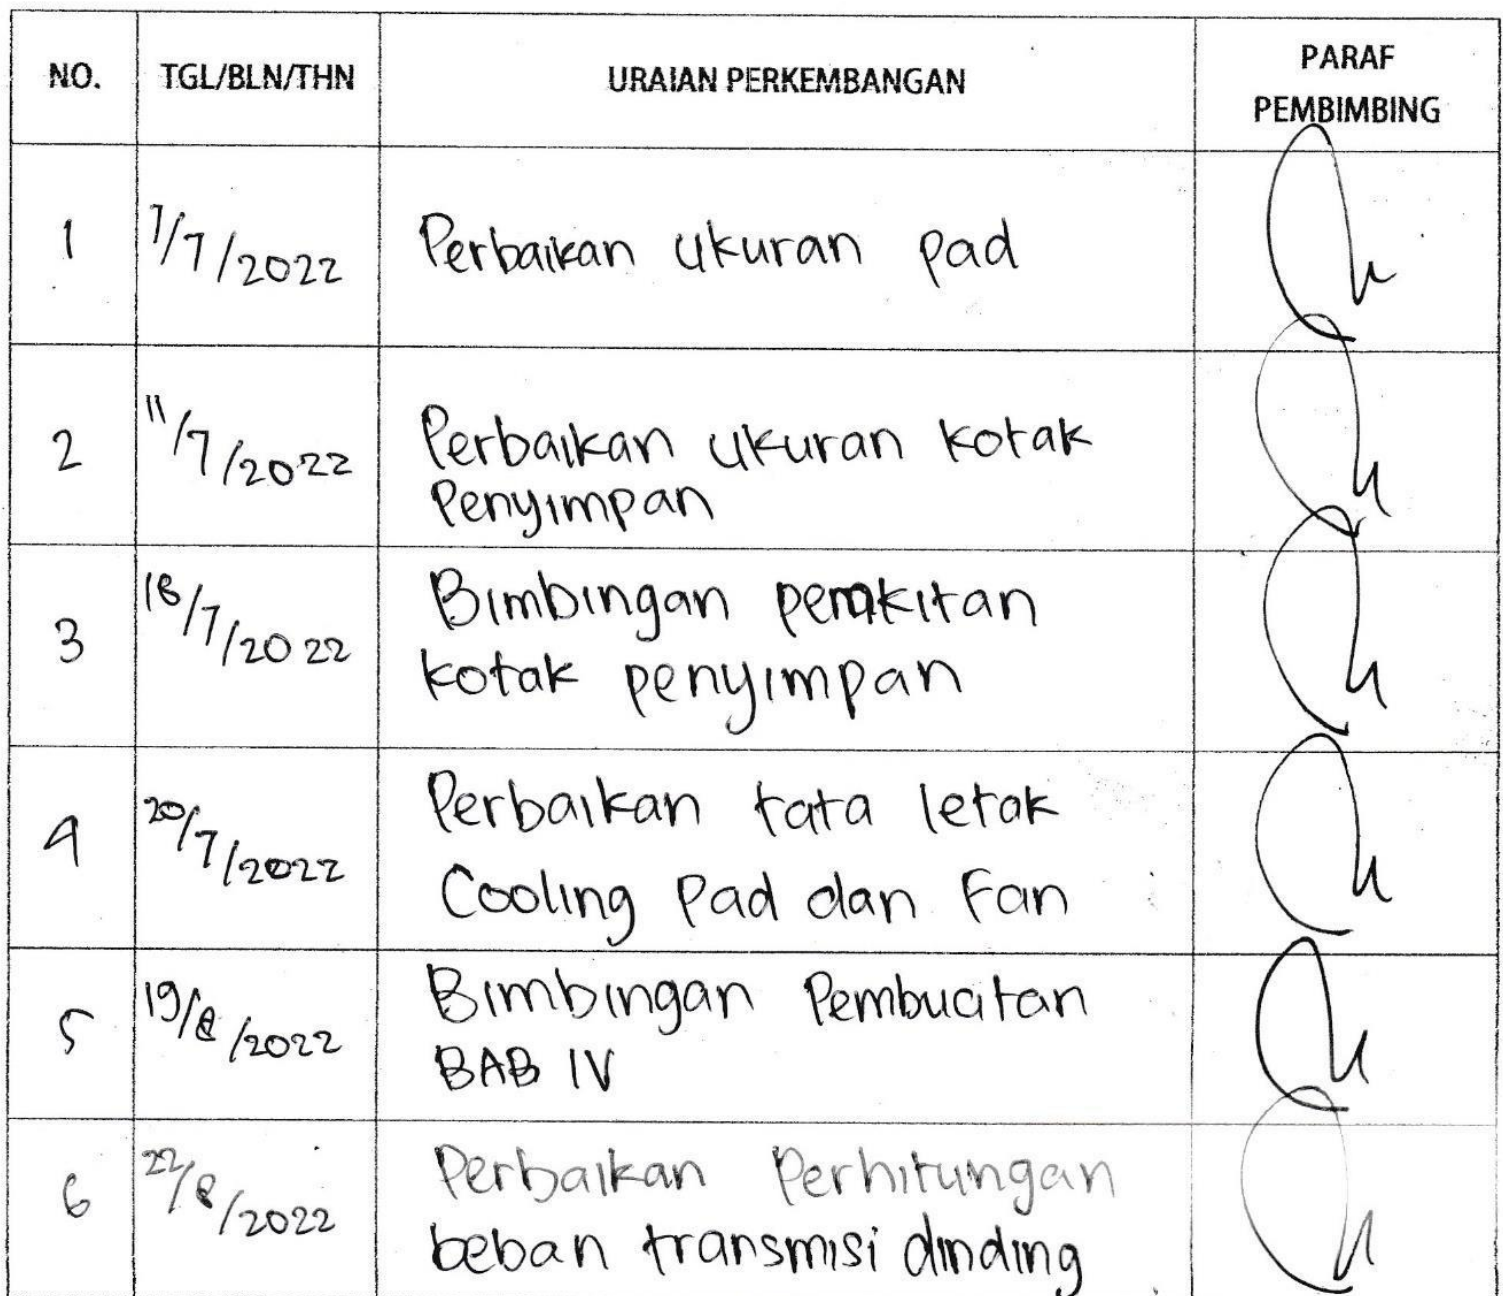 NO. TGL/BLN/THN URAIAN PERKEMBANGAN PARAF PEMBIMBING
1 7/7/2022 Perbaikan ukuran pad
2 11/7/2022 Perbaikan ukuran kotak
Penyimpan
3 18/7/2022 Bimbingan perakitan
kotak penyimpan
4 20/7/2022 Perbaikan tata letak
Cooling Pad dan Fan
5 19/8/2022 Bimbingan Pembuatan
BAB IV
6 22/8/2022 Perbaikan Perhitungan
beban transmisi dinding